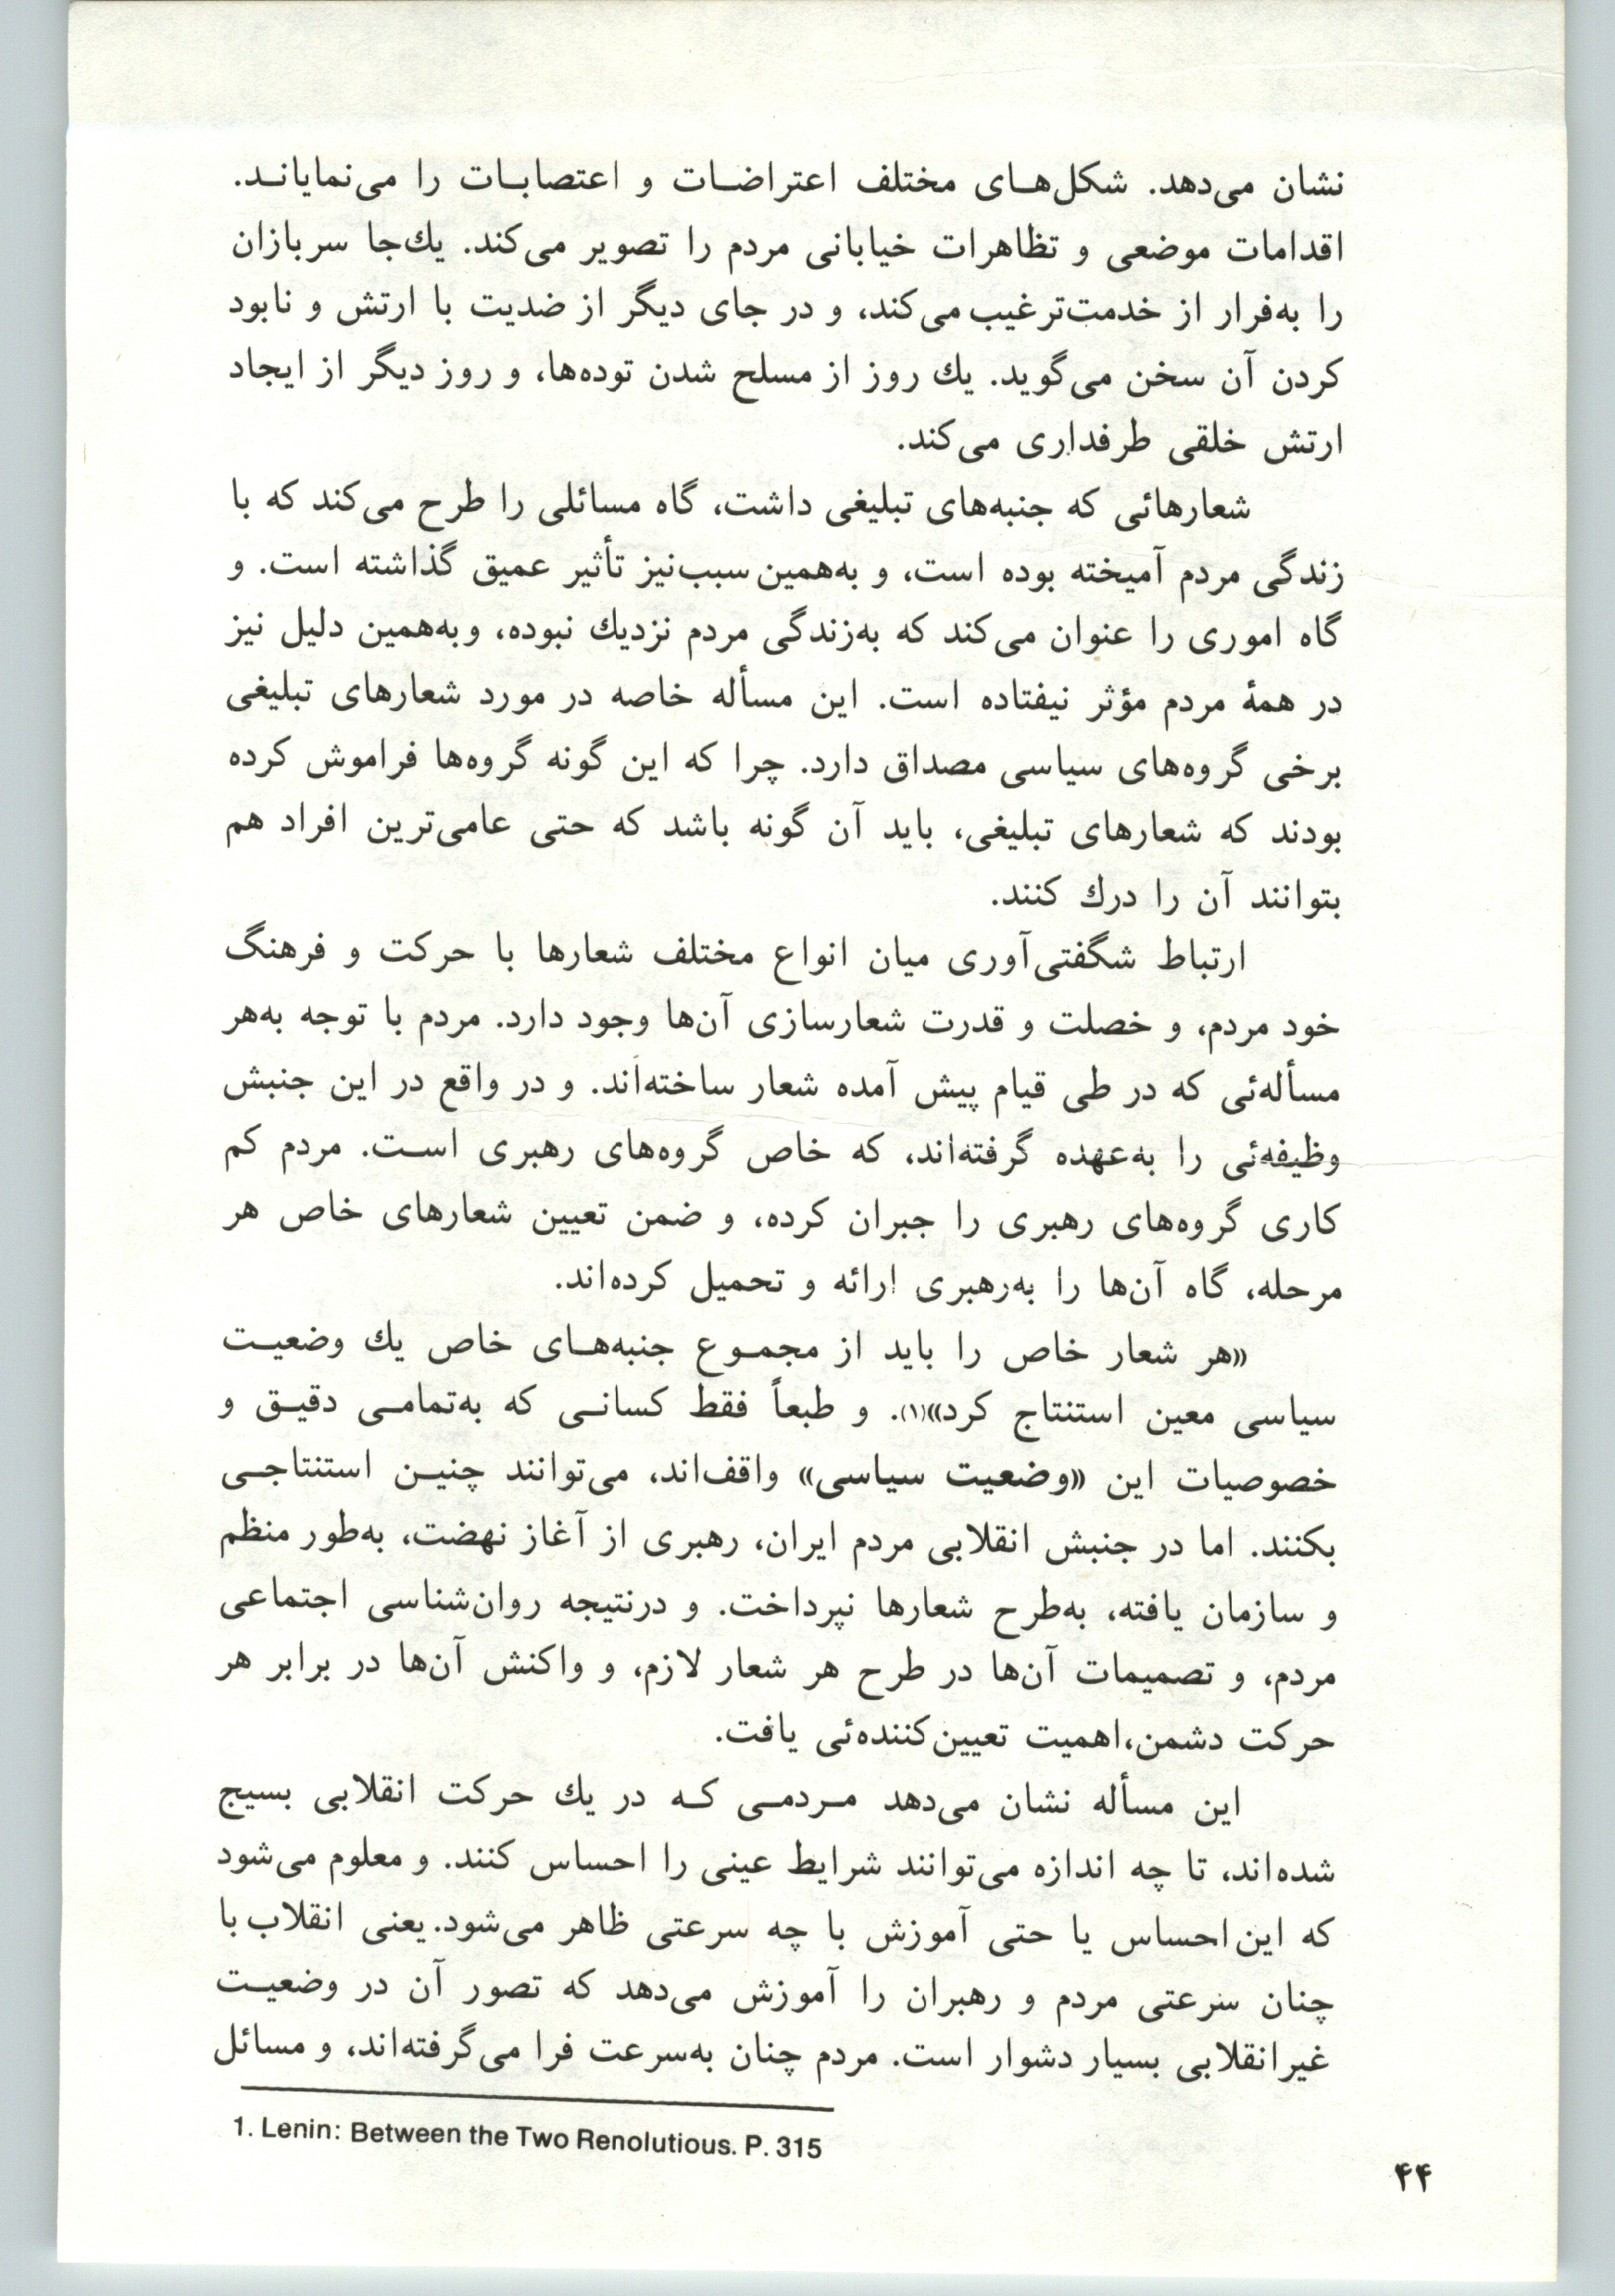 نشان می‌دهد. شکل‌های مختلف اعتراضات و اعتصابات را می‌نمایاند.
اقدامات موضعی و تظاهرات خیابانی مردم را تصویر می‌کند. یك‌جا سربازان
را به‌فرار از خدمت‌ترغیب می‌کند، و در جای دیگر از ضدیت با ارتش و نابود
کردن آن سخن می‌گوید. یك روز از مسلح شدن توده‌ها، و روز دیگر از ایجاد
ارتش خلقی طرفداری می‌کند.
شعارهائی که جنبه‌های تبلیغی داشت، گاه مسائلی را طرح می‌کند که با
زندگی مردم آمیخته بوده است، و به‌همین سبب‌نیز تأثیر عمیق گذاشته است. و
گاه اموری را عنوان می‌کند که به‌زندگی مردم نزدیك نبوده، وبه‌همین دلیل نیز
در همۀ مردم مؤثر نیفتاده است. این مسأله خاصه در مورد شعارهای تبلیغی
برخی گروه‌های سیاسی مصداق دارد. چرا که این گونه گروه‌ها فراموش کرده
بودند که شعارهای تبلیغی، باید آن گونه باشد که حتی عامی‌ترین افراد هم
بتوانند آن را درك کنند.
ارتباط شگفتی‌آوری میان انواع مختلف شعارها با حرکت و فرهنگ
خود مردم، و خصلت و قدرت شعارسازی آن‌ها وجود دارد. مردم با توجه به‌هر
مسأله‌ئی که در طی قیام پیش آمده شعار ساخته‌اند. و در واقع در این جنبش
وظیفه‌ئی را به‌عهده گرفته‌اند، که خاص گروه‌های رهبری است. مردم کم
کاری گروه‌های رهبری را جبران کرده، و ضمن تعیین شعارهای خاص هر
مرحله، گاه آن‌ها را به‌رهبری ارائه و تحمیل کرده‌اند.
«هر شعار خاص را باید از مجموع جنبه‌های خاص یك وضعیت
سیاسی معین استنتاج کرد»(۱). و طبعاً فقط کسانی که به‌تمامی دقیق و
خصوصیات این «وضعیت سیاسی» واقف‌اند، می‌توانند چنین استنتاجی
بکنند. اما در جنبش انقلابی مردم ایران، رهبری از آغاز نهضت، به‌طور منظم
و سازمان یافته، به‌طرح شعارها نپرداخت. و درنتیجه روان‌شناسی اجتماعی
مردم، و تصمیمات آن‌ها در طرح هر شعار لازم، و واکنش آن‌ها در برابر هر
حرکت دشمن،اهمیت تعیین‌کننده‌ئی یافت.
این مسأله نشان می‌دهد مردمی که در یك حرکت انقلابی بسیج
شده‌اند، تا چه اندازه می‌توانند شرایط عینی را احساس کنند. و معلوم می‌شود
که این احساس یا حتی آموزش با چه سرعتی ظاهر می‌شود. یعنی انقلاب با
چنان سرعتی مردم و رهبران را آموزش می‌دهد که تصور آن در وضعیت
غیرانقلابی بسیار دشوار است. مردم چنان به‌سرعت فرا می‌گرفته‌اند، و مسائل
1. Lenin: Between the Two Renolutious. P. 315
۴۴